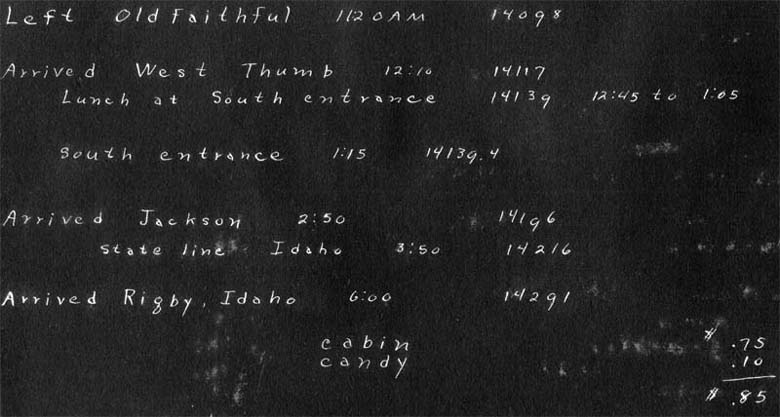 Left Old Faithful 1120 AM 14098
Arrived West Thumb 12:10 14117
Lunch at South entrance 14139 12:45 to 1:05
South entrance 1:15 14139.4
Arrived Jackson 2:50 14196
State line Idaho 3:50 14216
Arrived Rigby, Idaho 6:00 14291
cabin $ .75
candy .10
$ .85